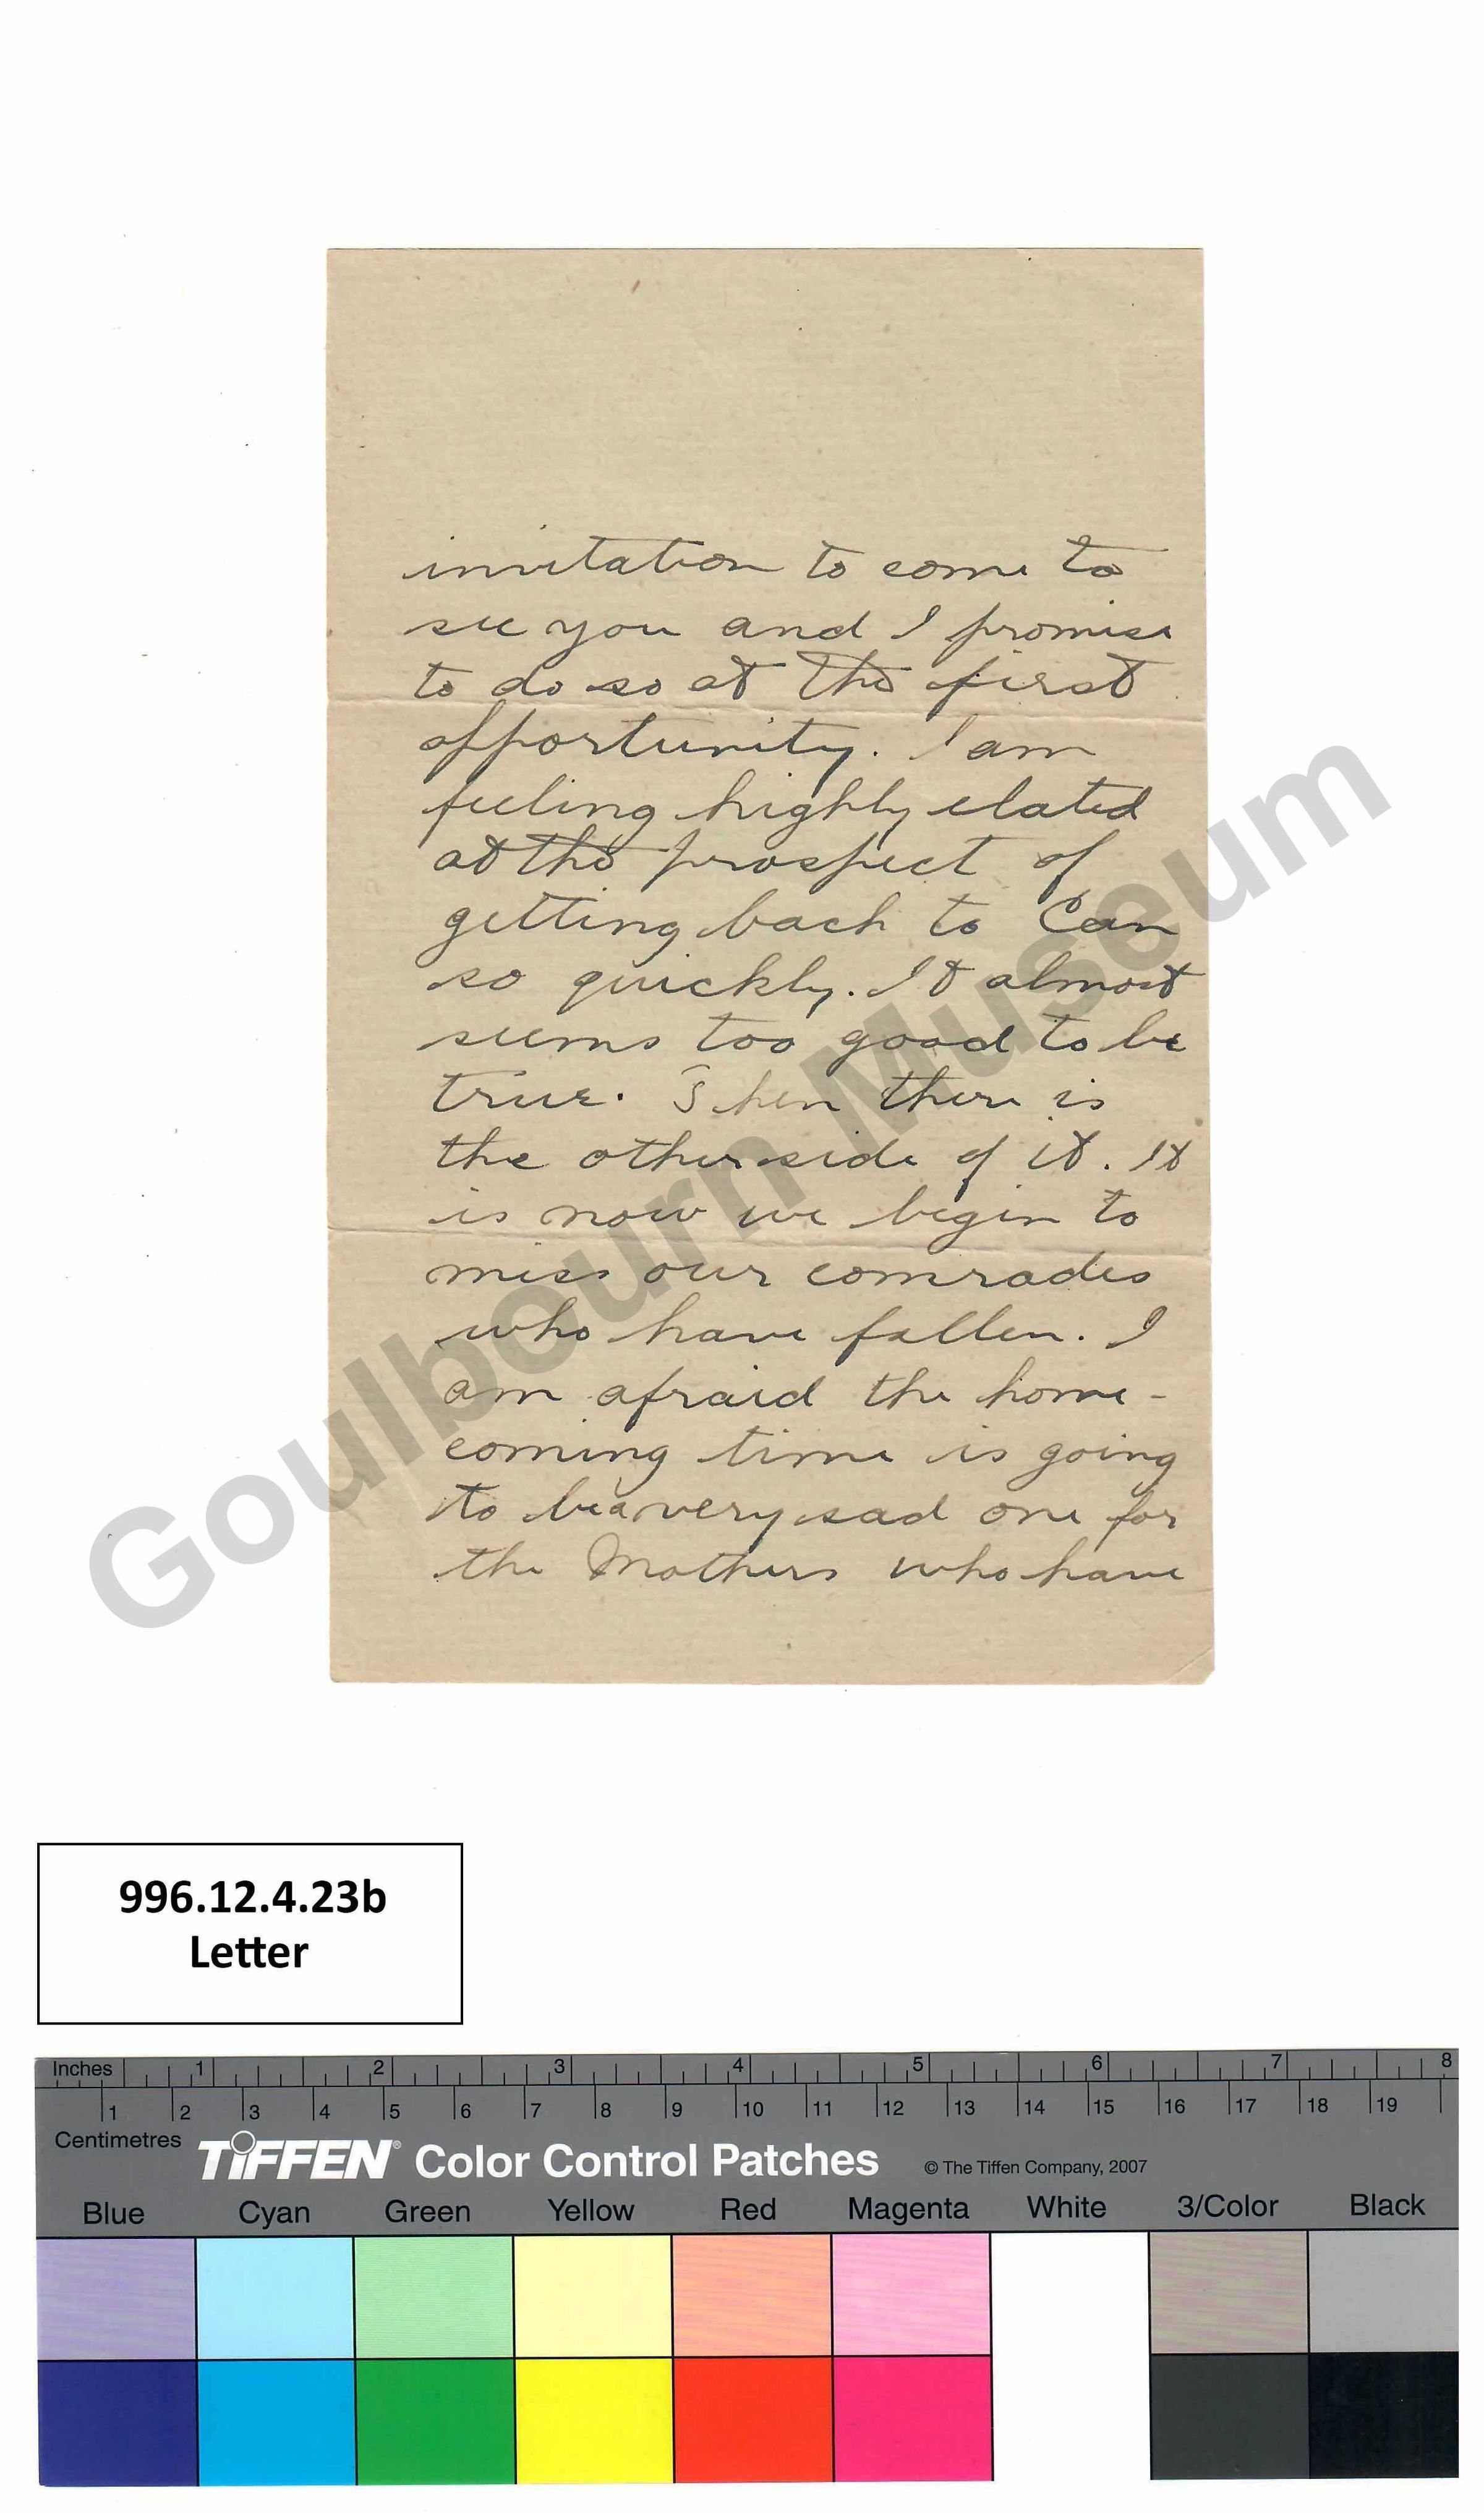 invitation to come to
see you and I promise
to do so at the first
opportunity. I am
feeling highly elated
at the prospect of
getting back to Can
so quickly. It almost
seems too good to be
true. Then there is
the other side of it. It
is now we begin to
miss our comrades
who have fallen. I
am afraid the home-
coming time is going
to be a very sad one for
the Mothers who have
Goulbourn Museum
996.12.4.23b
Letter
Inches 1 2 3 4 5 6 7 8
1 2 3 4 5 6 7 8 9 10 11 12 13 14 15 16 17 18 19
Centimetres
TIFFEN® Color Control Patches © The Tiffen Company, 2007
Blue Cyan Green Yellow Red Magenta White 3/Color Black